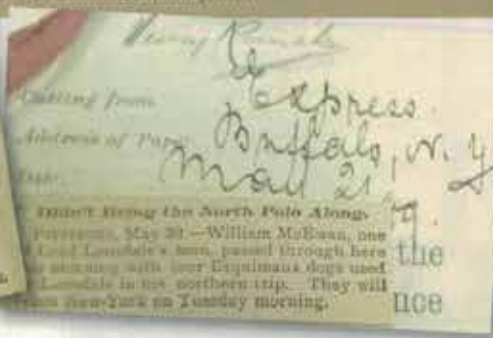 Henry Romeike
Cutting from
Express.
Address of Paper
Buffalo, N.Y
May 21
Didn't Bring the North Pole Along.
May 20.—William McEwan, one
Lord Lonsdale's men, passed through here
morning with four Esquimaux dogs used
Lonsdale in his northern trip. They will
New-York on Tuesday morning.
the
nce